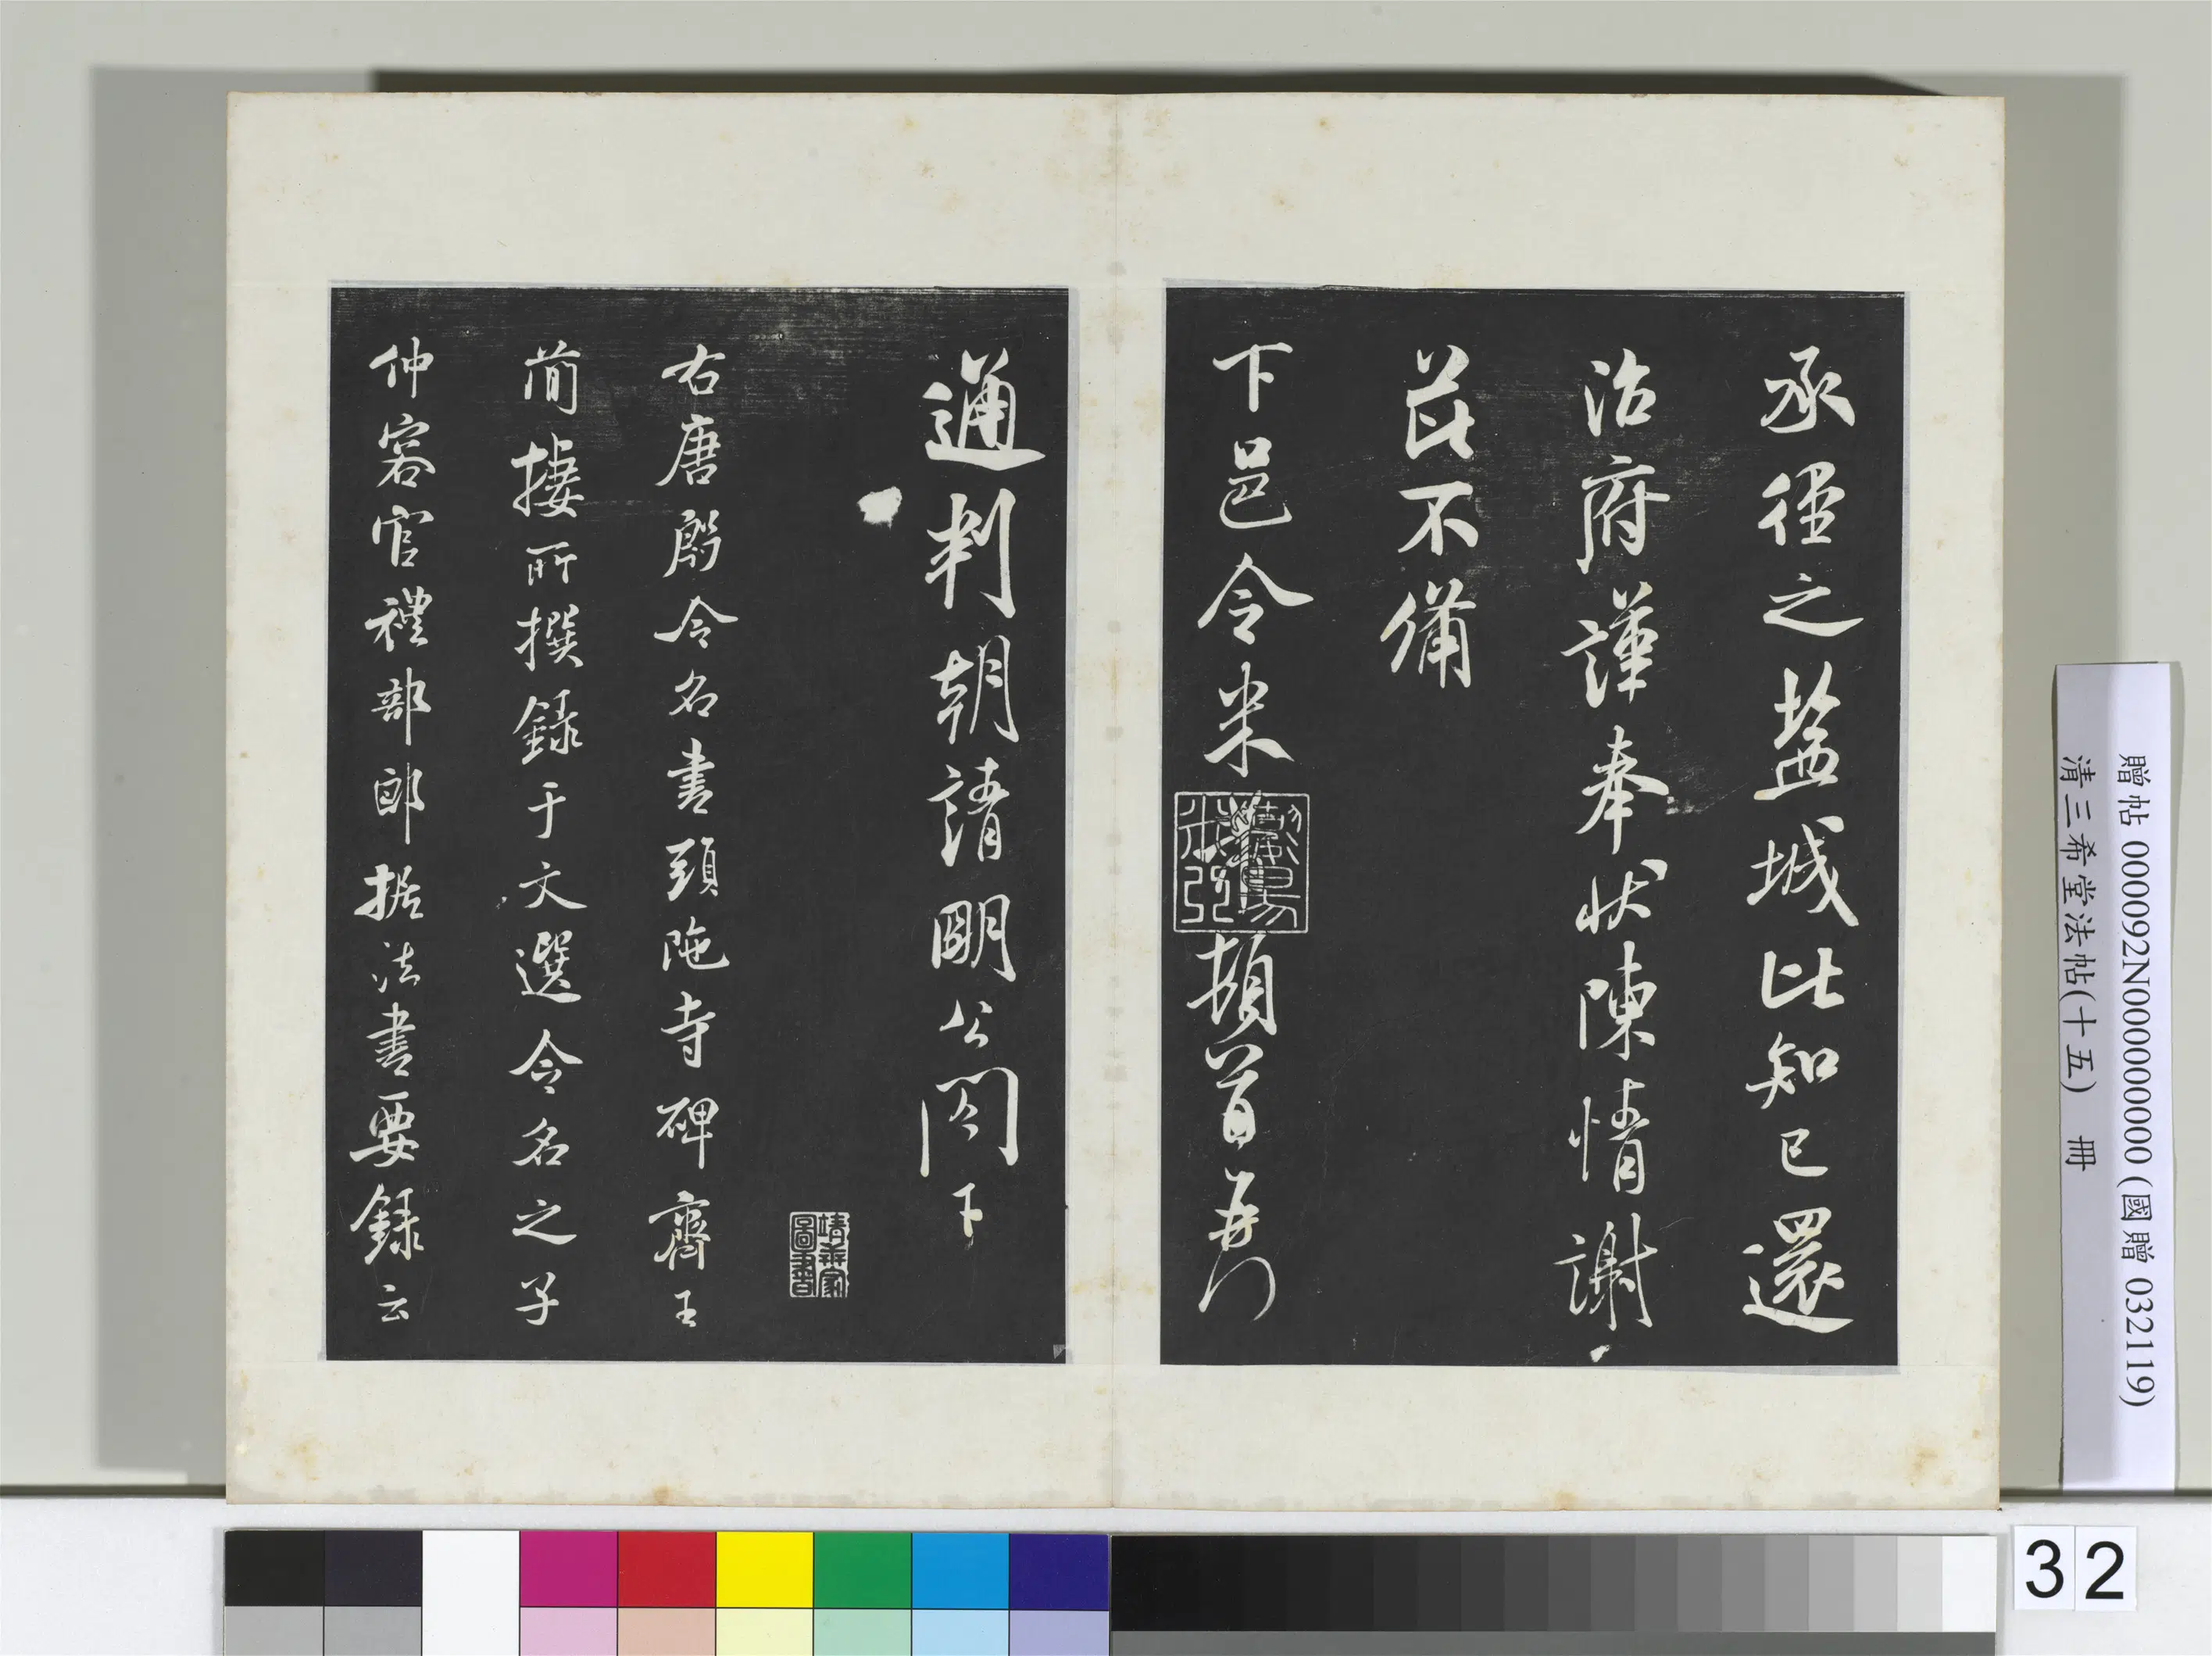 承徑之盐城比知已還
治府謹奉狀陳情謝
茈不備
下邑令米
頓首再
通判朝請明公閤下
右唐殷令名書頭陁寺碑齊王
簡棲所撰録于文選令名之子
仲容官禮部郎据法書要録云
贈帖 000092N000000000 (國贈 032119)
清三希堂法帖(十五) 冊
32